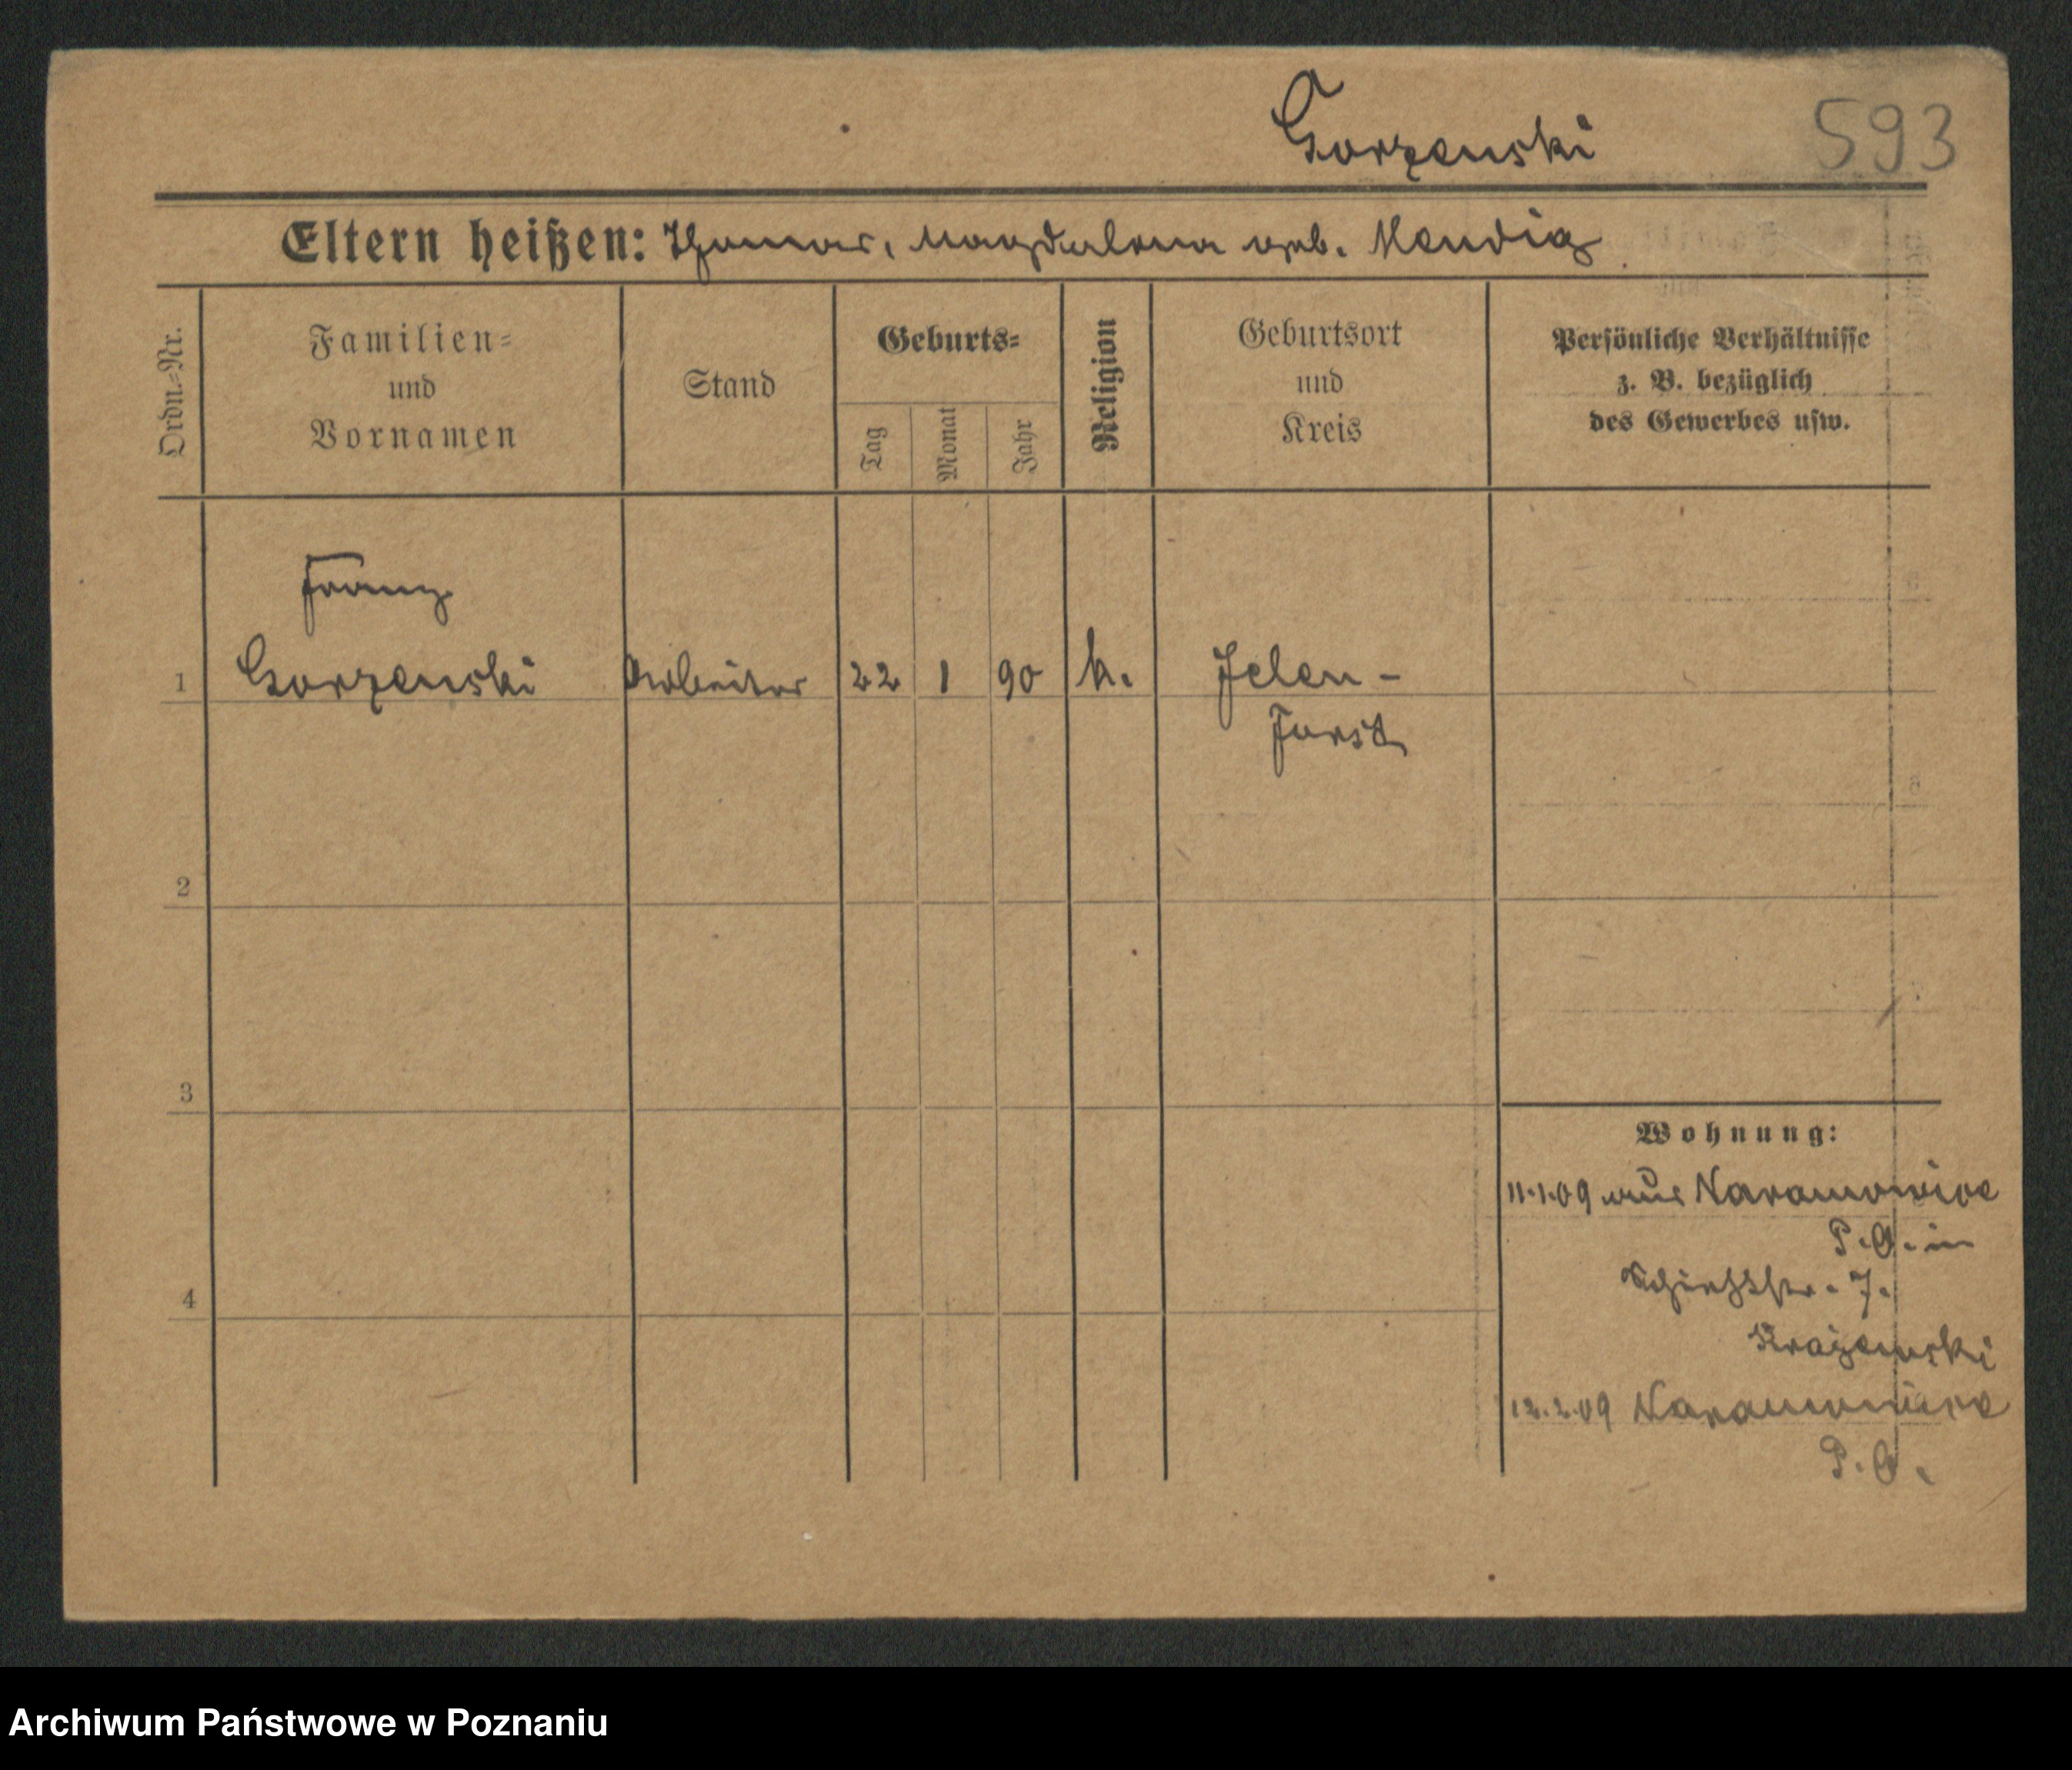 Gorzenski 593
Eltern heißen: Thomas, Magdalena geb. Mendig
Ordn.=Nr.
Familien=
und
Vornamen
Stand
Geburts=
Tag
Monat
Jahr
Religion
Geburtsort
und
Kreis
Persönliche Verhältnisse
z. B. bezüglich
des Gewerbes usw.
Franz
1 Gorzenski Arbeiter 22 1 90 k. Jelen-
Forst
2
3
4
Wohnung:
11.1.09 aus Naramowice
P.O. in
Schiethstr. 7.
12.2.09 Naramowice
P.O.
Archiwum Państwowe w Poznaniu